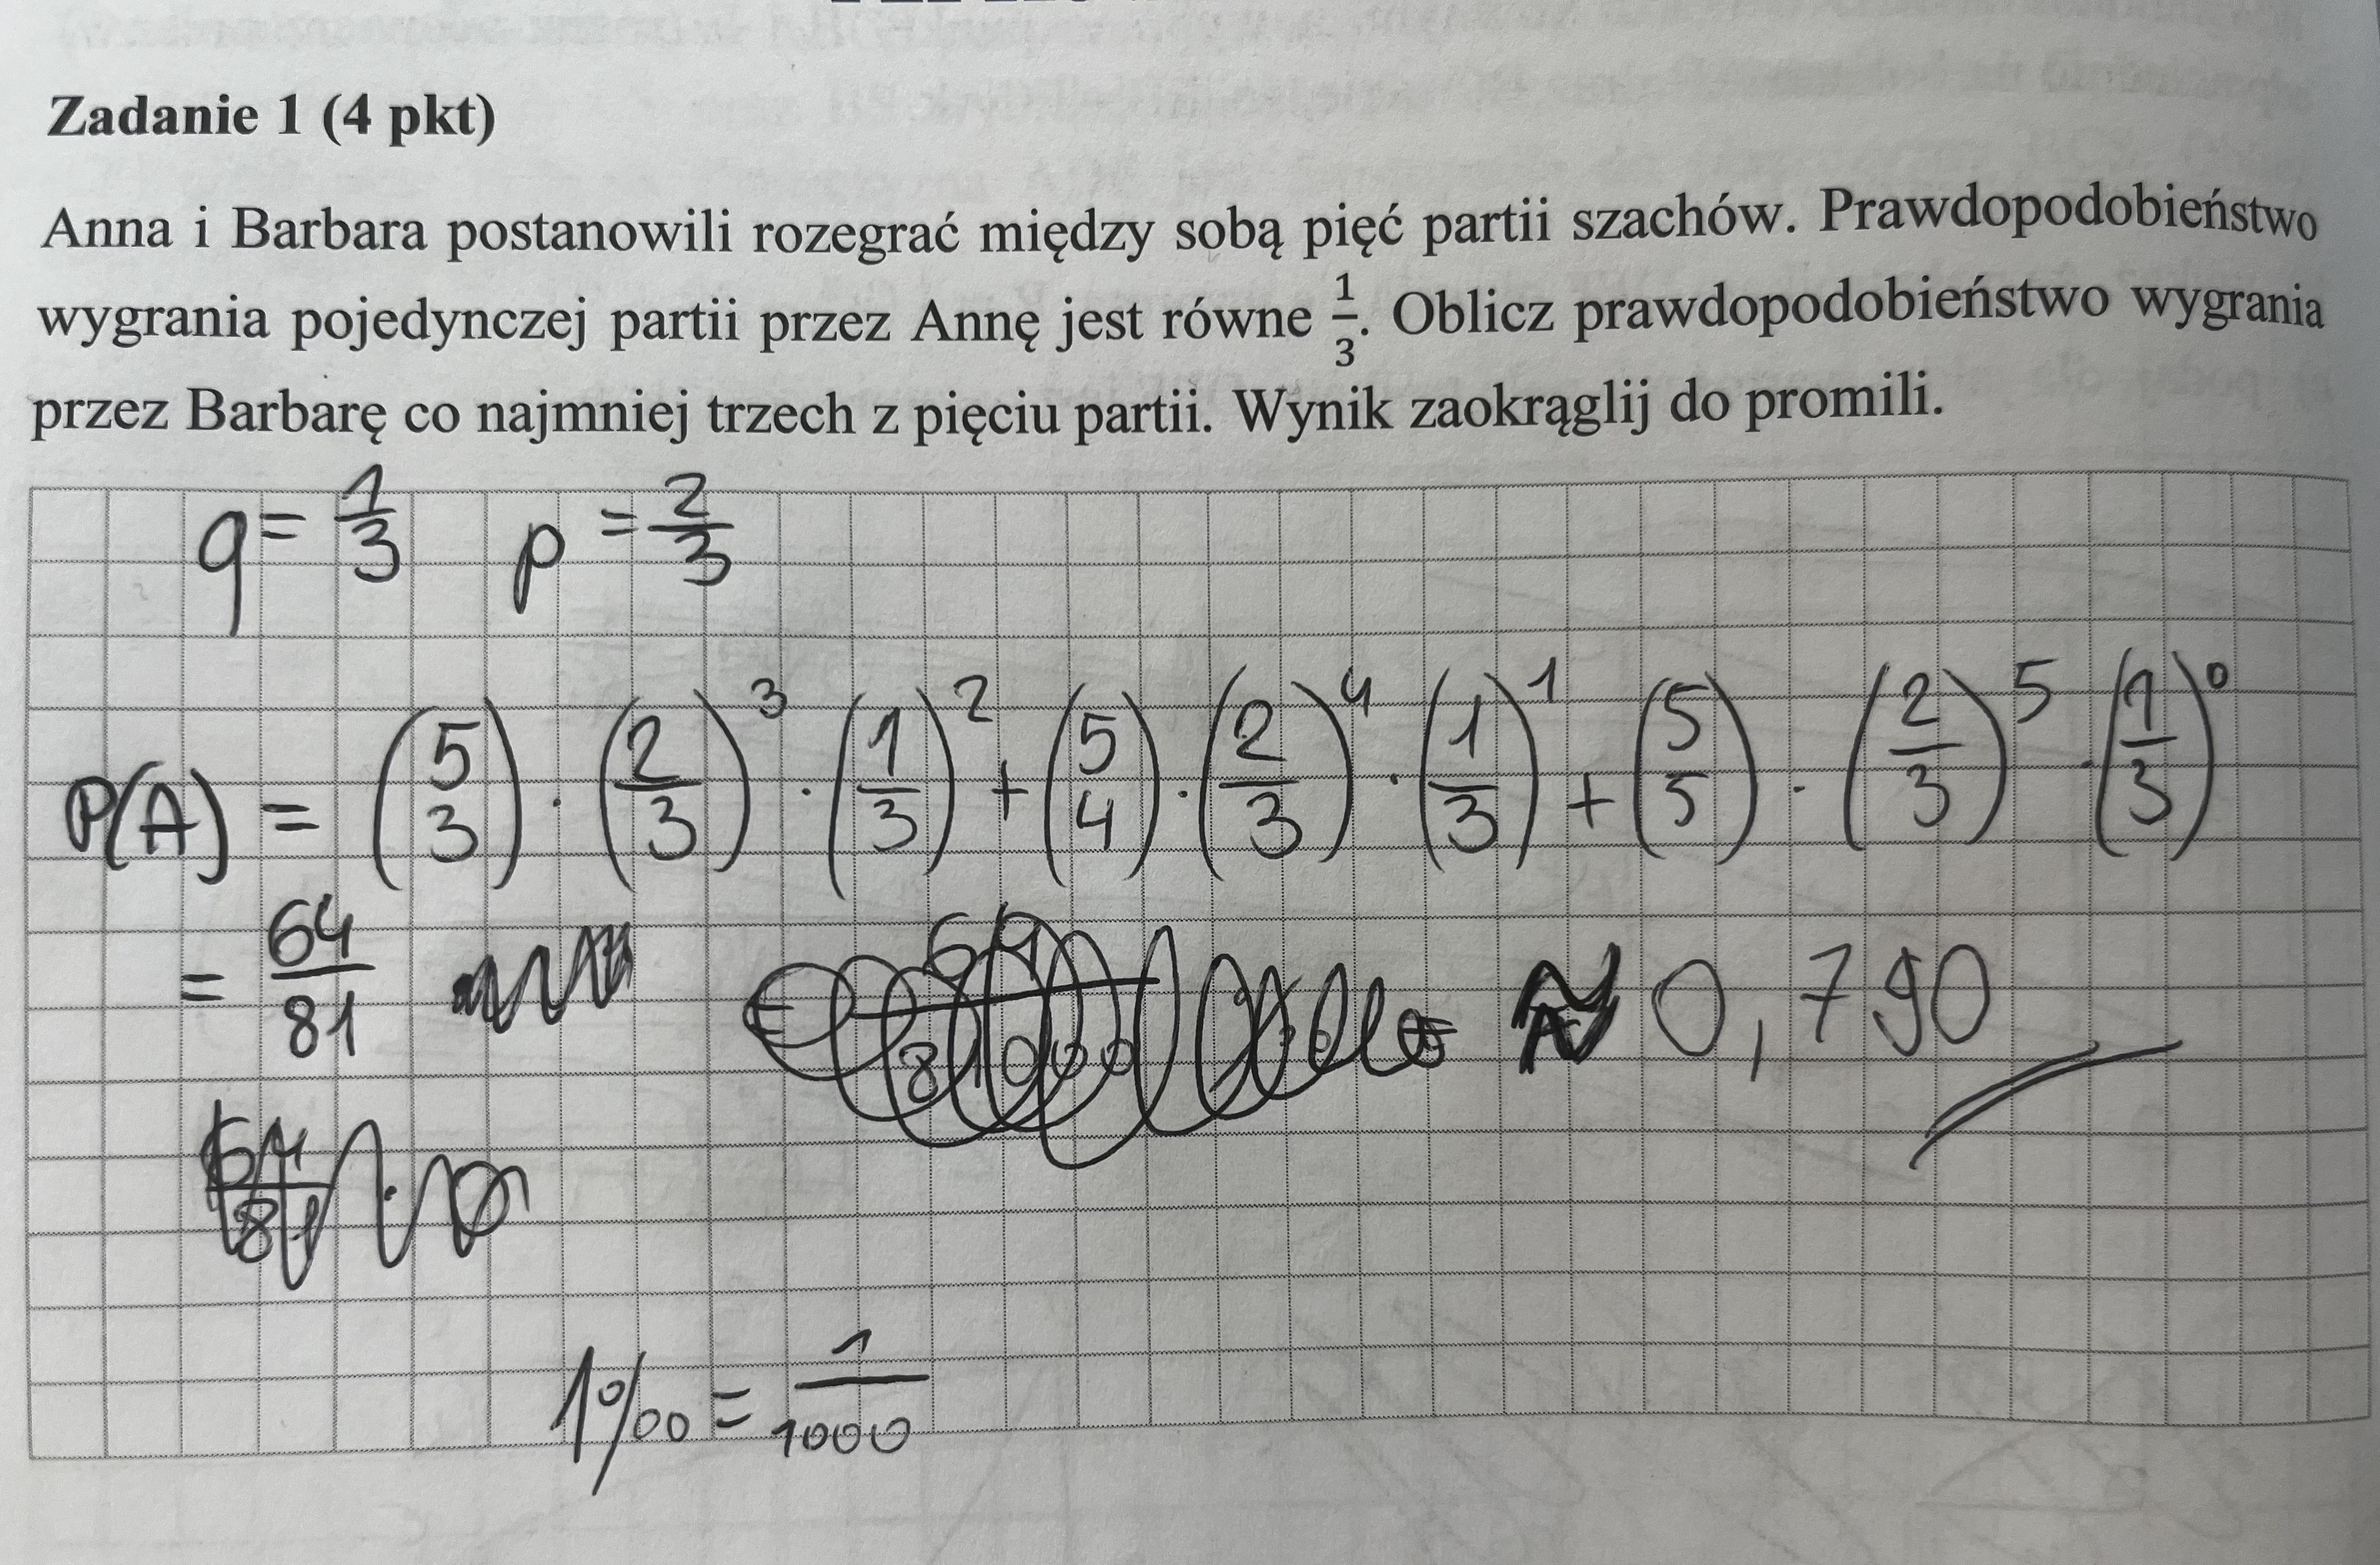 Zadanie 1 (4 pkt)
Anna i Barbara postanowili rozegrać między sobą pięć partii szachów. Prawdopodobieństwo
wygrania pojedynczej partii przez Annę jest równe 1/3. Oblicz prawdopodobieństwo wygrania
przez Barbarę co najmniej trzech z pięciu partii. Wynik zaokrąglij do promili.
q = 1/3 p = 2/3
P(A) = (5 3) · (2/3)^3 · (1/3)^2 + (5 4) · (2/3)^4 · (1/3)^1 + (5 5) · (2/3)^5 · (1/3)^0
= 64/81 ≈ 0,790
1‰ = 1/1000